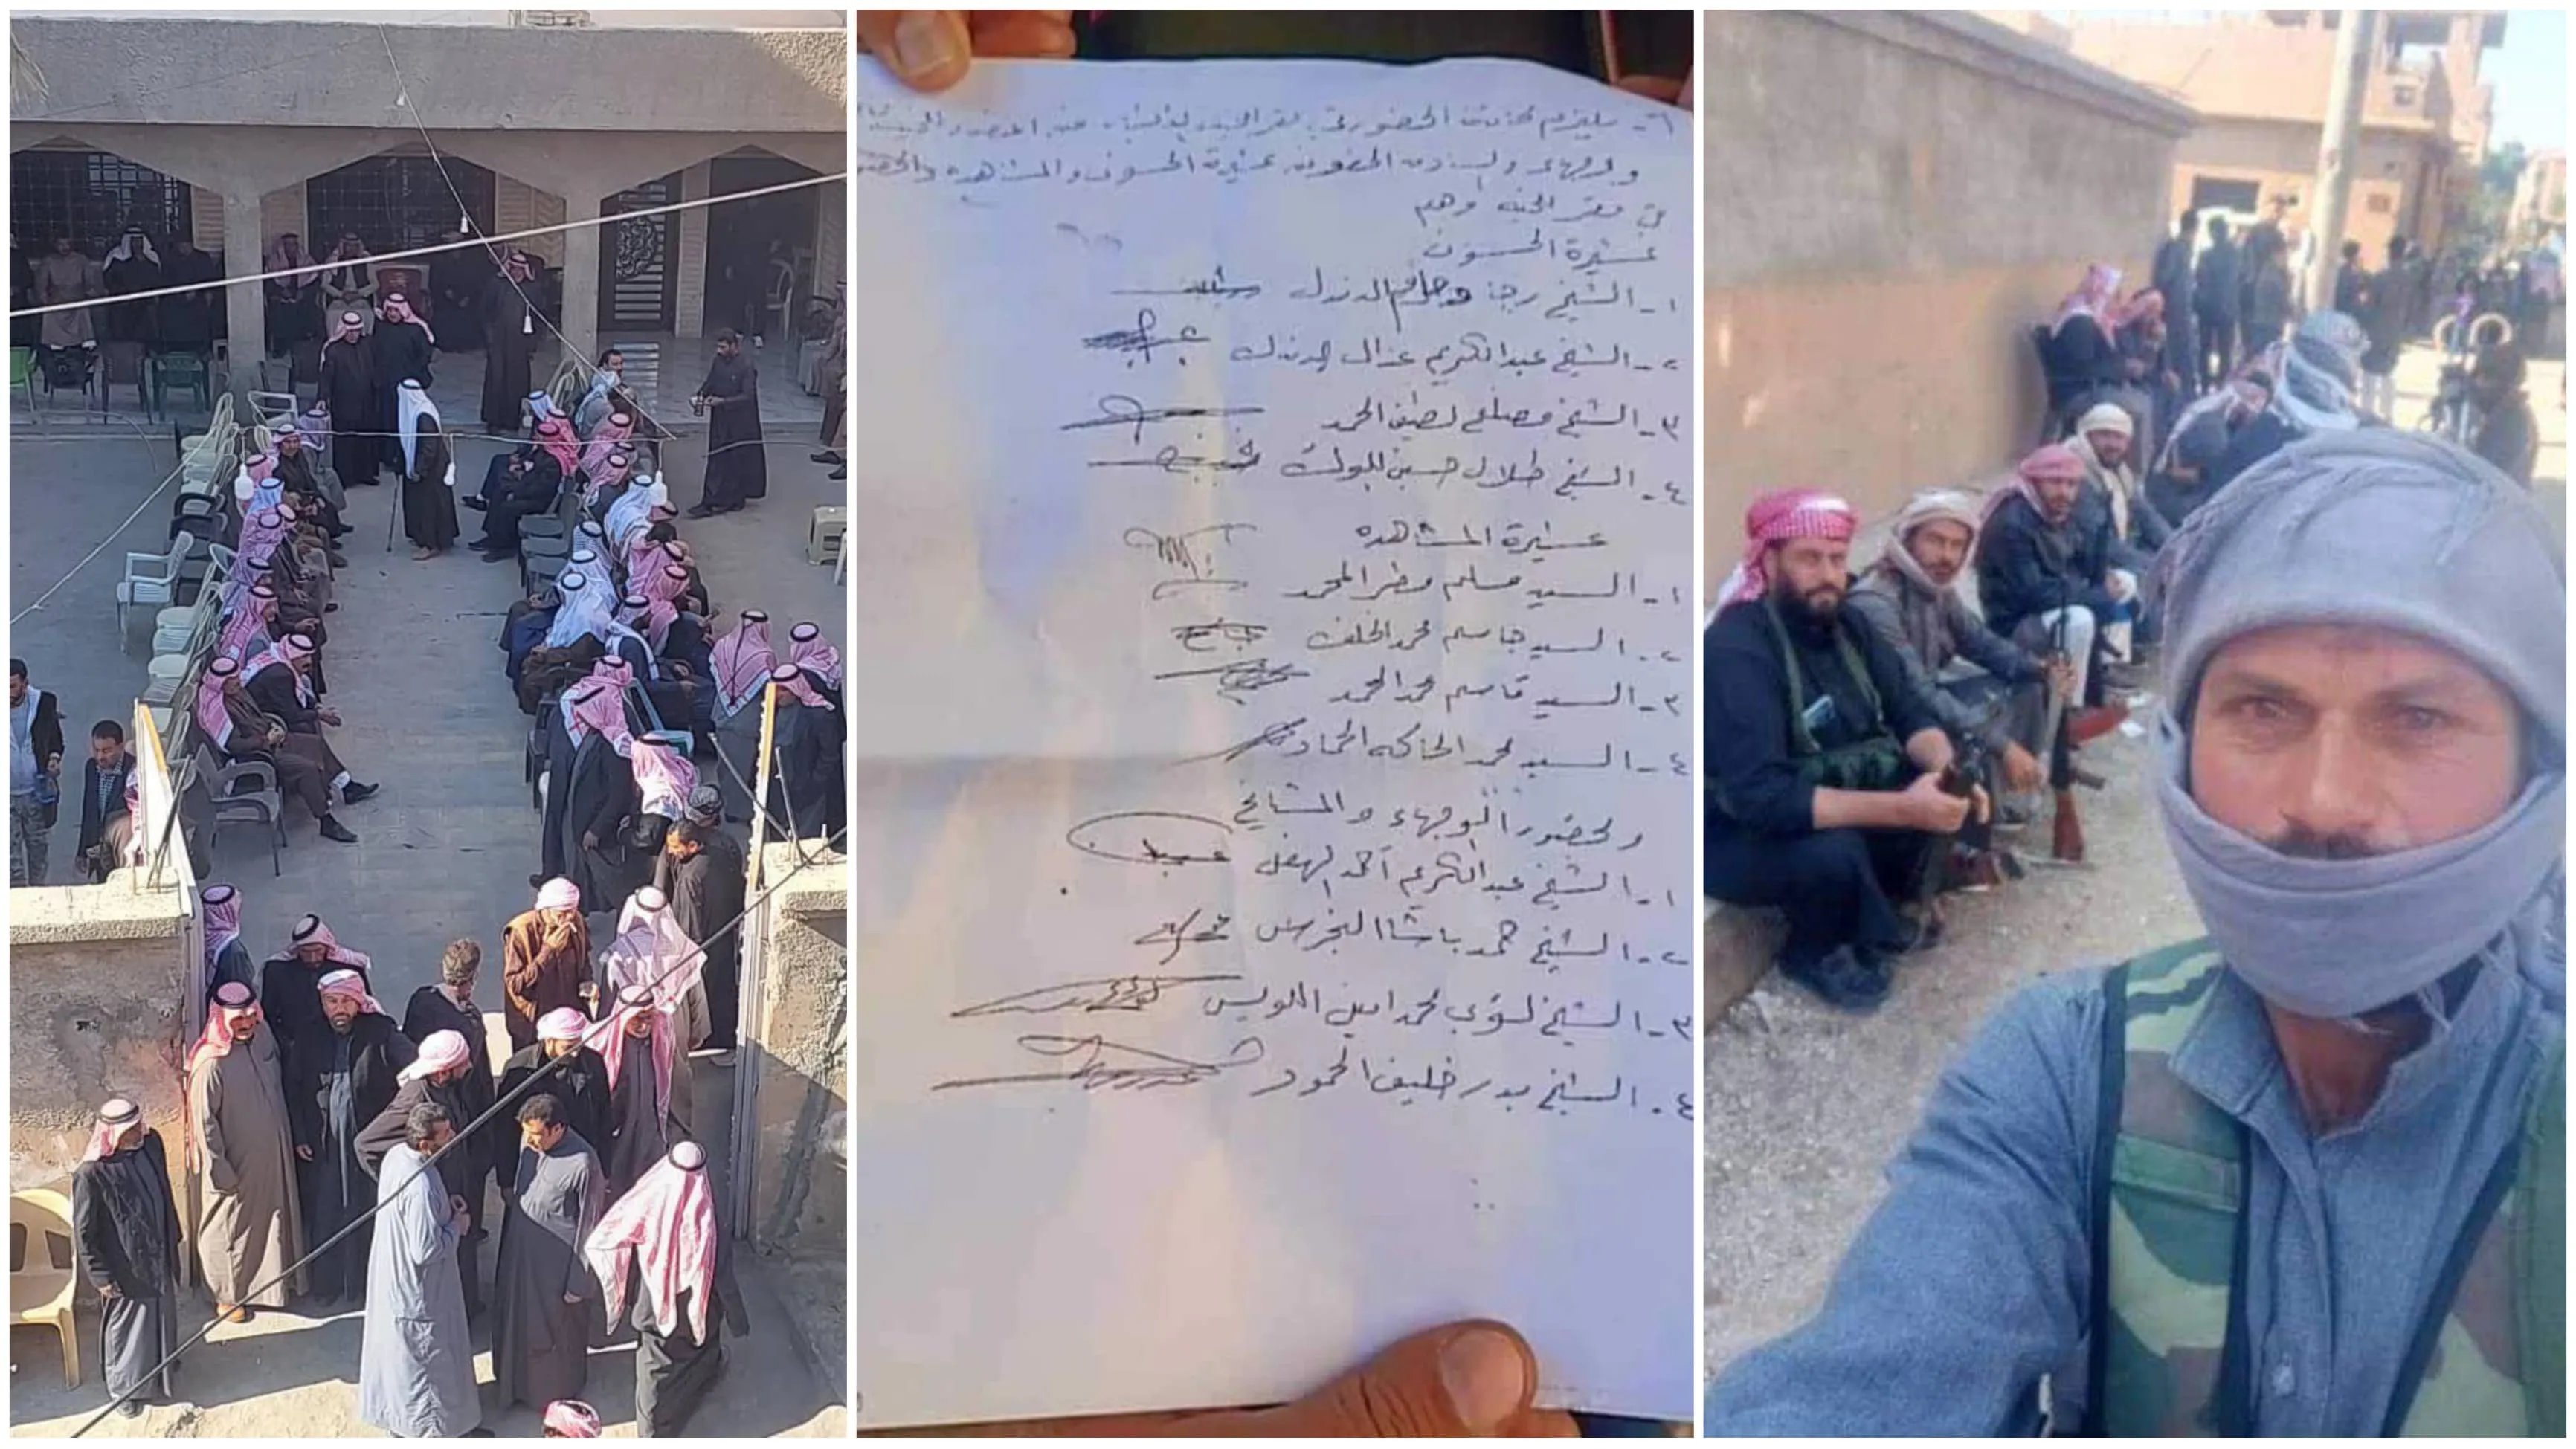 ٦- يلتزم الحضور في مقر
ولوجهاء والسادة الحضور من عشيرة الحسون والمشاهده
في مقر الجنه وهم
عشيرة الحسون
١- الشيخ رجا الدندل
٢- الشيخ عبدالكريم عذال الدندل
٣- الشيخ مصلح لطيف الحمد
٤- الشيخ طلال حسين
عشيرة المشاهده
١- السيد مسلم مطر المحمد
٢- السيد جاسم محمد الخلف
٣- السيد قاسم محمد الحمد
٤- السيد محمد الحماد
وبحضور الوجهاء والمشايخ
١- الشيخ عبدالكريم احمد الهفل
٢- الشيخ حمد باشا
٣- الشيخ لؤي محمد امين اللويس
٤- الشيخ بدر خليف الحمود